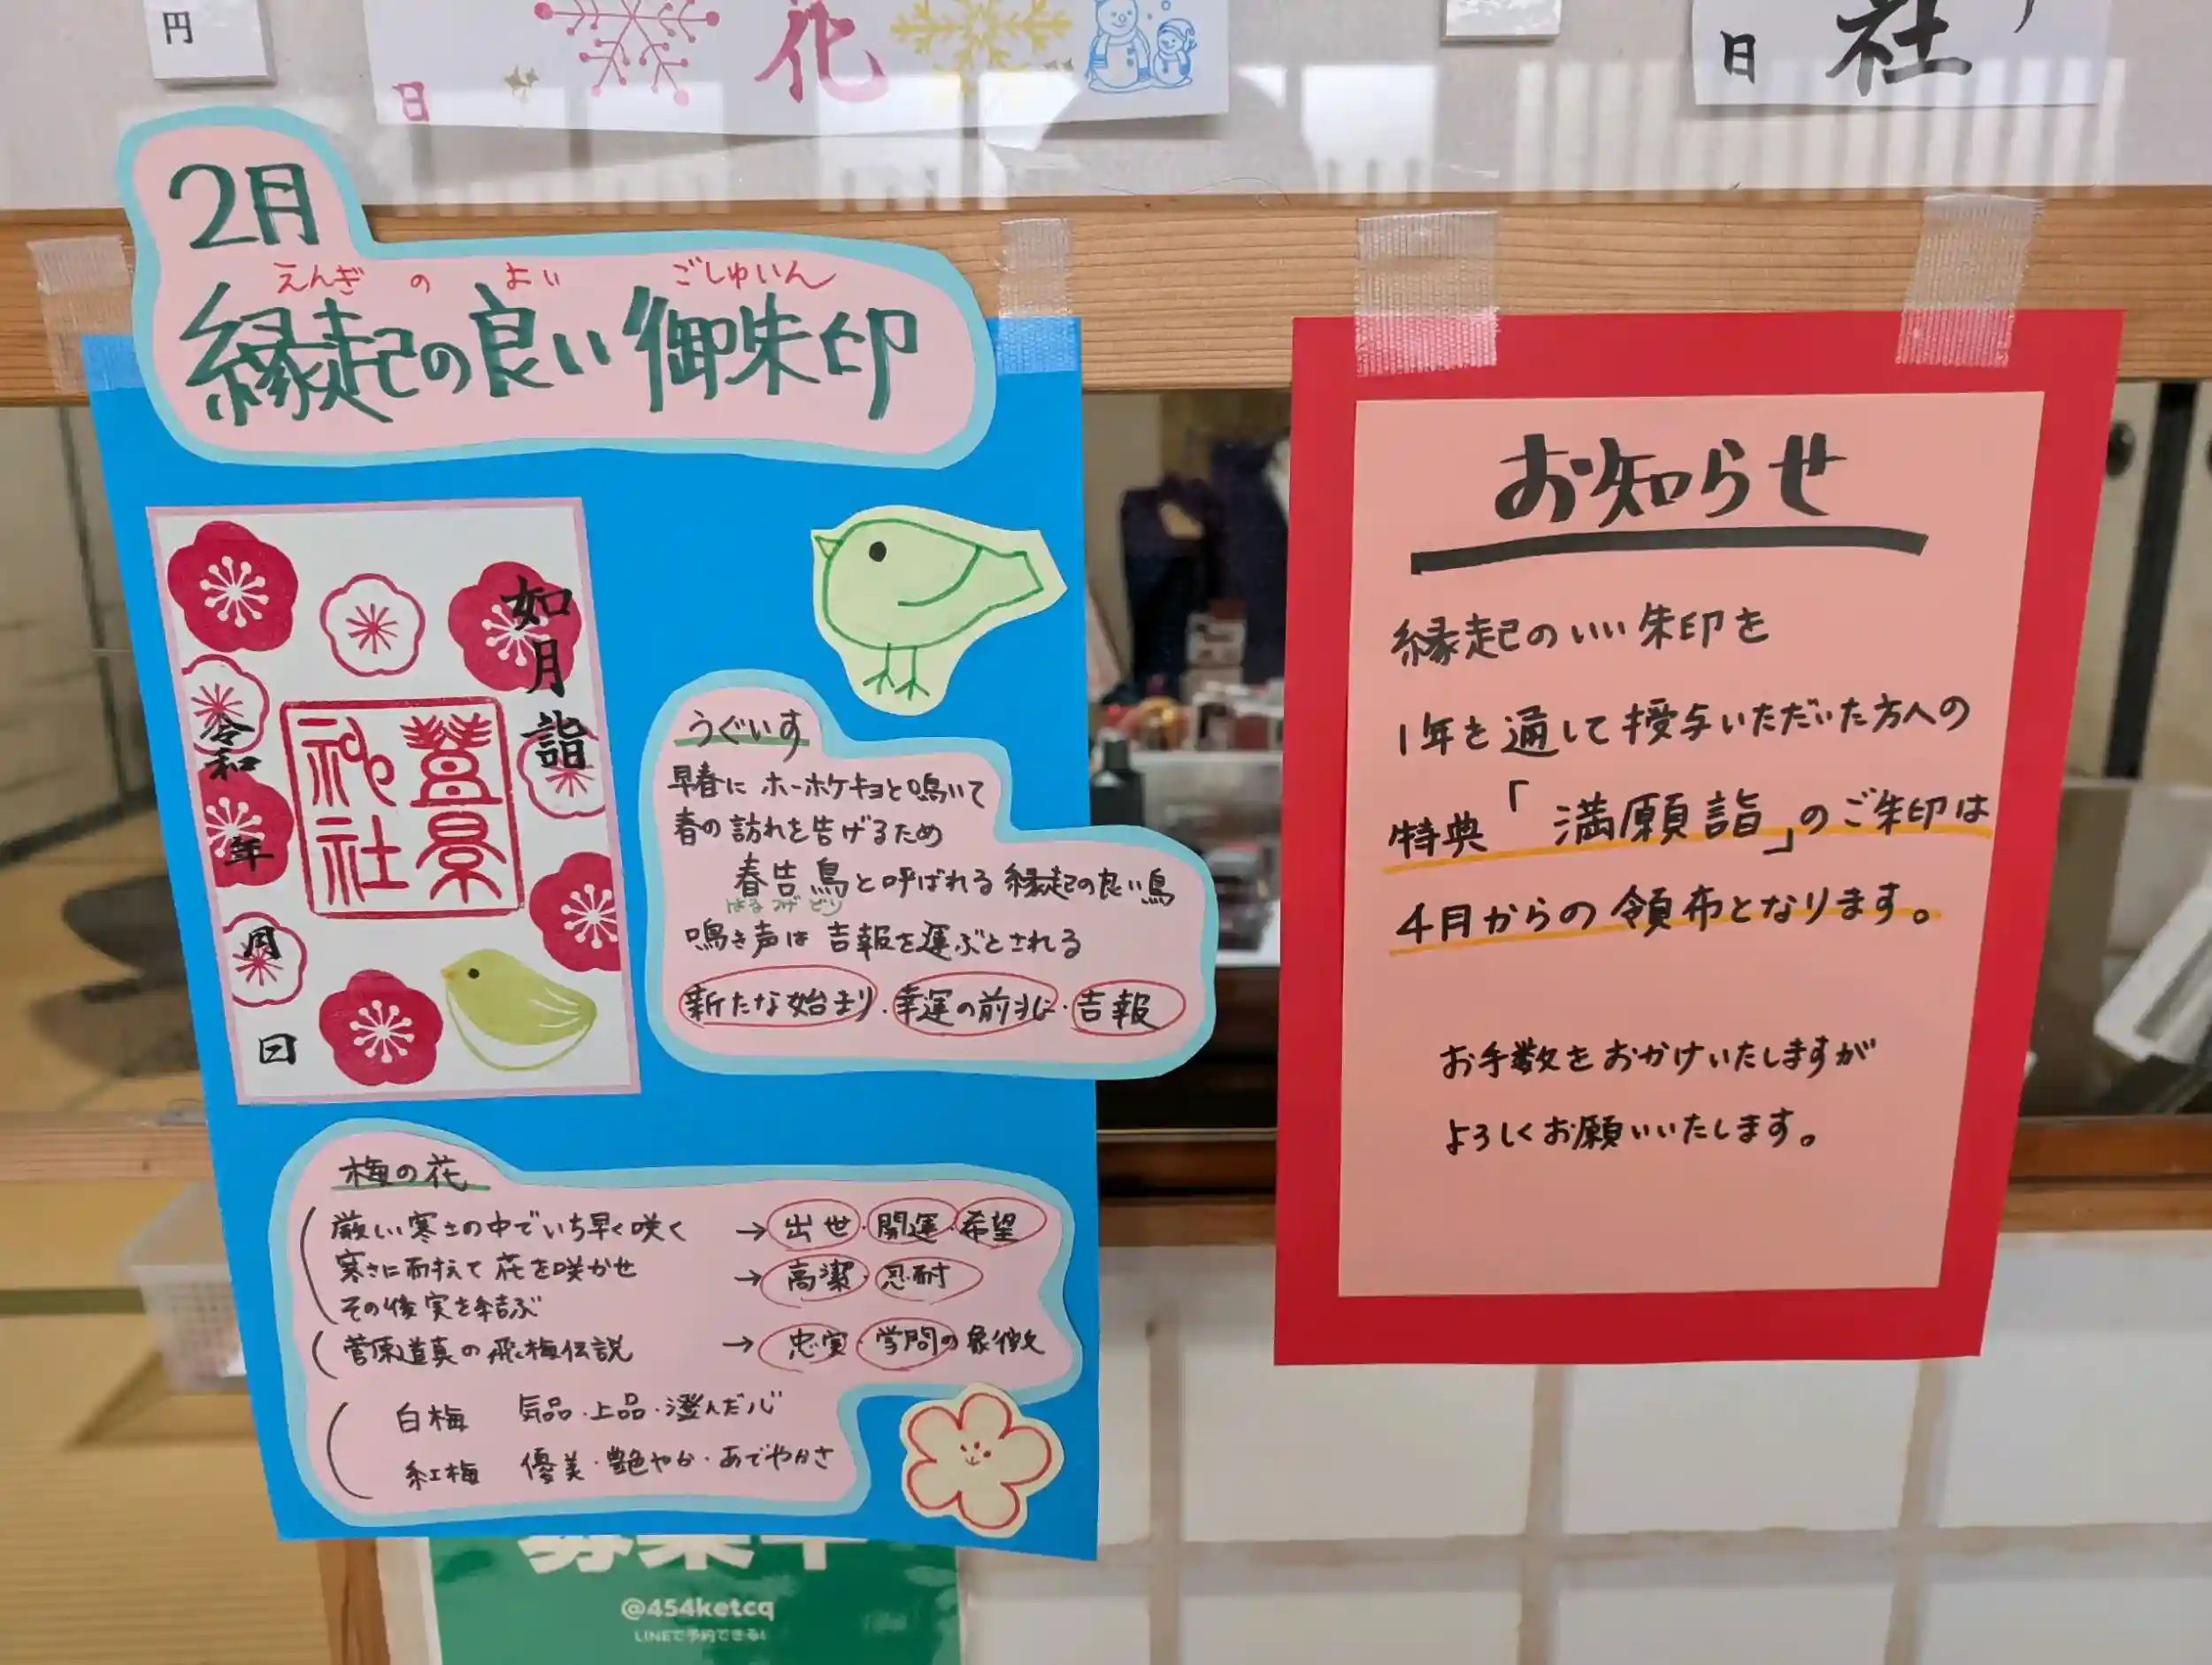 円
日
花
日
社
2月
えんぎ の よい ごしゅいん
縁起の良い御朱印
如月詣
豊景神社
令和 年 月 日
うぐいす
早春に ホーホケキョと鳴いて
春の訪れを告げるため
春告鳥と呼ばれる縁起の良い鳥
はるつげどり
鳴き声は 吉報を運ぶとされる
新たな始まり・幸運の前兆・吉報
梅の花
厳しい寒さの中でいち早く咲く → 出世・開運・希望
寒さに耐えて花を咲かせ → 高潔・忍耐
その後実を結ぶ
菅原道真の飛梅伝説 → 忠実・学問の象徴
白梅 気品・上品・澄んだ心
紅梅 優美・艶やか・あでやかさ
お知らせ
縁起のいい朱印を
1年を通して授与いただいた方への
特典「満願詣」のご朱印は
4月からの領布となります。
お手数をおかけいたしますが
よろしくお願いいたします。
募集中
@454ketcq
LINEで予約できる!